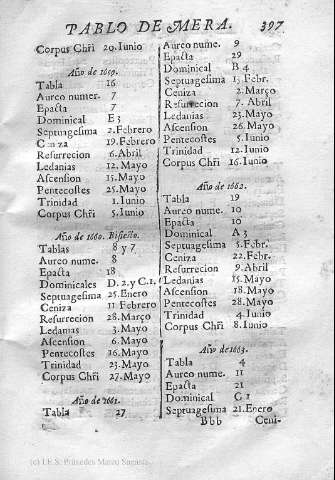 TABLO DE MERA. 397
Corpus Chr̄i 20. Iunio
Año de 1659.
Tabla 16
Aureo numer. 7
Epacta 7
Dominical E 3
Septuagesima 2. Febrero
Ceniza 19. Febrero
Resurrecion 6. Abril
Ledanias 12. Mayo
Ascension 15. Mayo
Pentecostes 25. Mayo
Trinidad 1. Iunio
Corpus Chr̄i 5. Iunio
Año de 1660. Bisiesto.
Tablas 8 y 7
Aureo nume. 8
Epacta 18
Dominicales D. 2. y C. 1.
Septuagesima 25. Enero
Ceniza 11 Febrero
Resurrecion 28. Março
Ledanias 3. Mayo
Ascension 6. Mayo
Pentecostes 16. Mayo
Trinidad 23. Mayo
Corpus Chr̄i 27. Mayo
Año de 1661.
Tabla 27
Aureo nume. 9
Epacta 29
Dominical B 4
Septuagesima 13. Febr.
Ceniza 2. Março
Resurrecion 7. Abril
Ledanias 23. Mayo
Ascension 26. Mayo
Pentecostes 5. Iunio
Trinidad 12. Iunio
Corpus Chr̄i 16. Iunio
Año de 1662.
Tabla 19
Aureo nume. 10
Epacta 10
Dominical A 3
Septuagesima 5. Febr.
Ceniza 22. Febr.
Resurrecion 9. Abril
Ledanias 15. Mayo
Ascension 18. Mayo
Pentecostes 28. Mayo
Trinidad 4. Iunio
Corpus Chr̄i 8. Iunio
Año de 1663.
Tabla 4
Aureo nume. 11
Epacta 21
Dominical G 1
Septuagesima 21. Enero
Bbb Ceni-
(c) I.E.S. Práxedes Mateo Sagasta